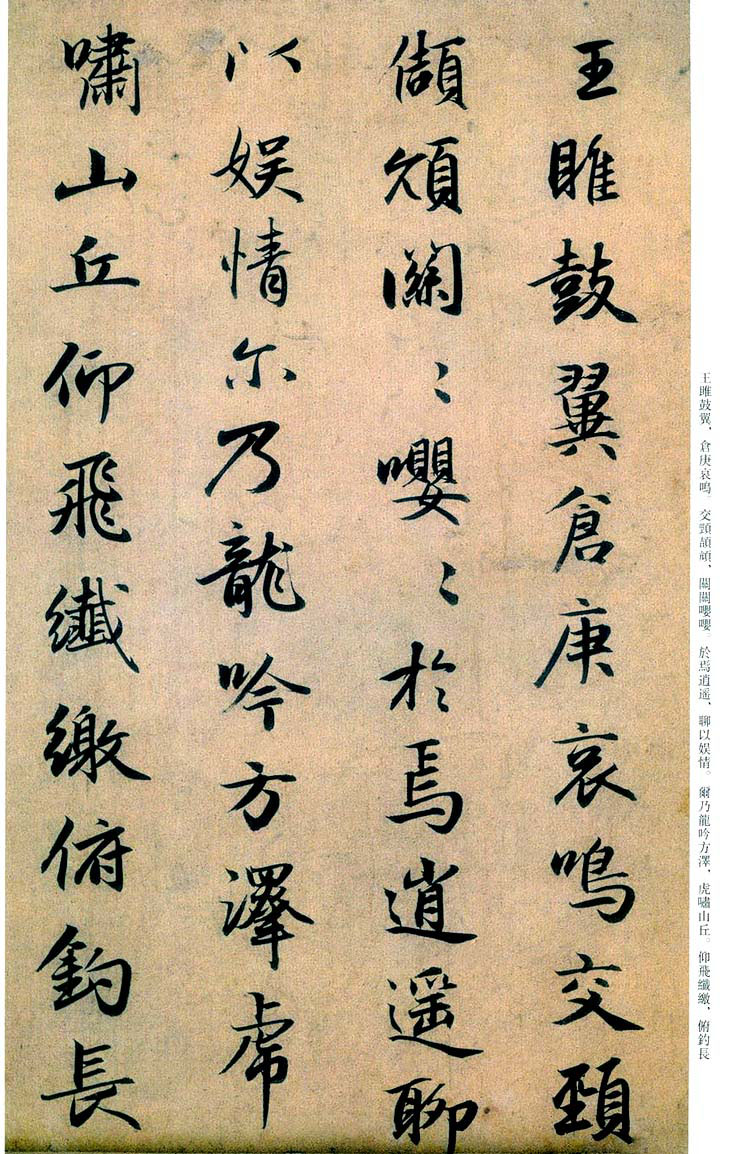 王雎鼓翼、倉庚哀鳴。交頸頡頏、關關嚶嚶。於焉逍遥、聊以娱情。爾乃龍吟方澤、虎嘯山丘。仰飛纖繳、俯釣長
王雎鼓翼倉庚哀鳴交頸
頡頏關〻嚶〻於焉逍遥聊
以娱情尔乃龍吟方澤虎
嘯山丘仰飛纖繳俯釣長